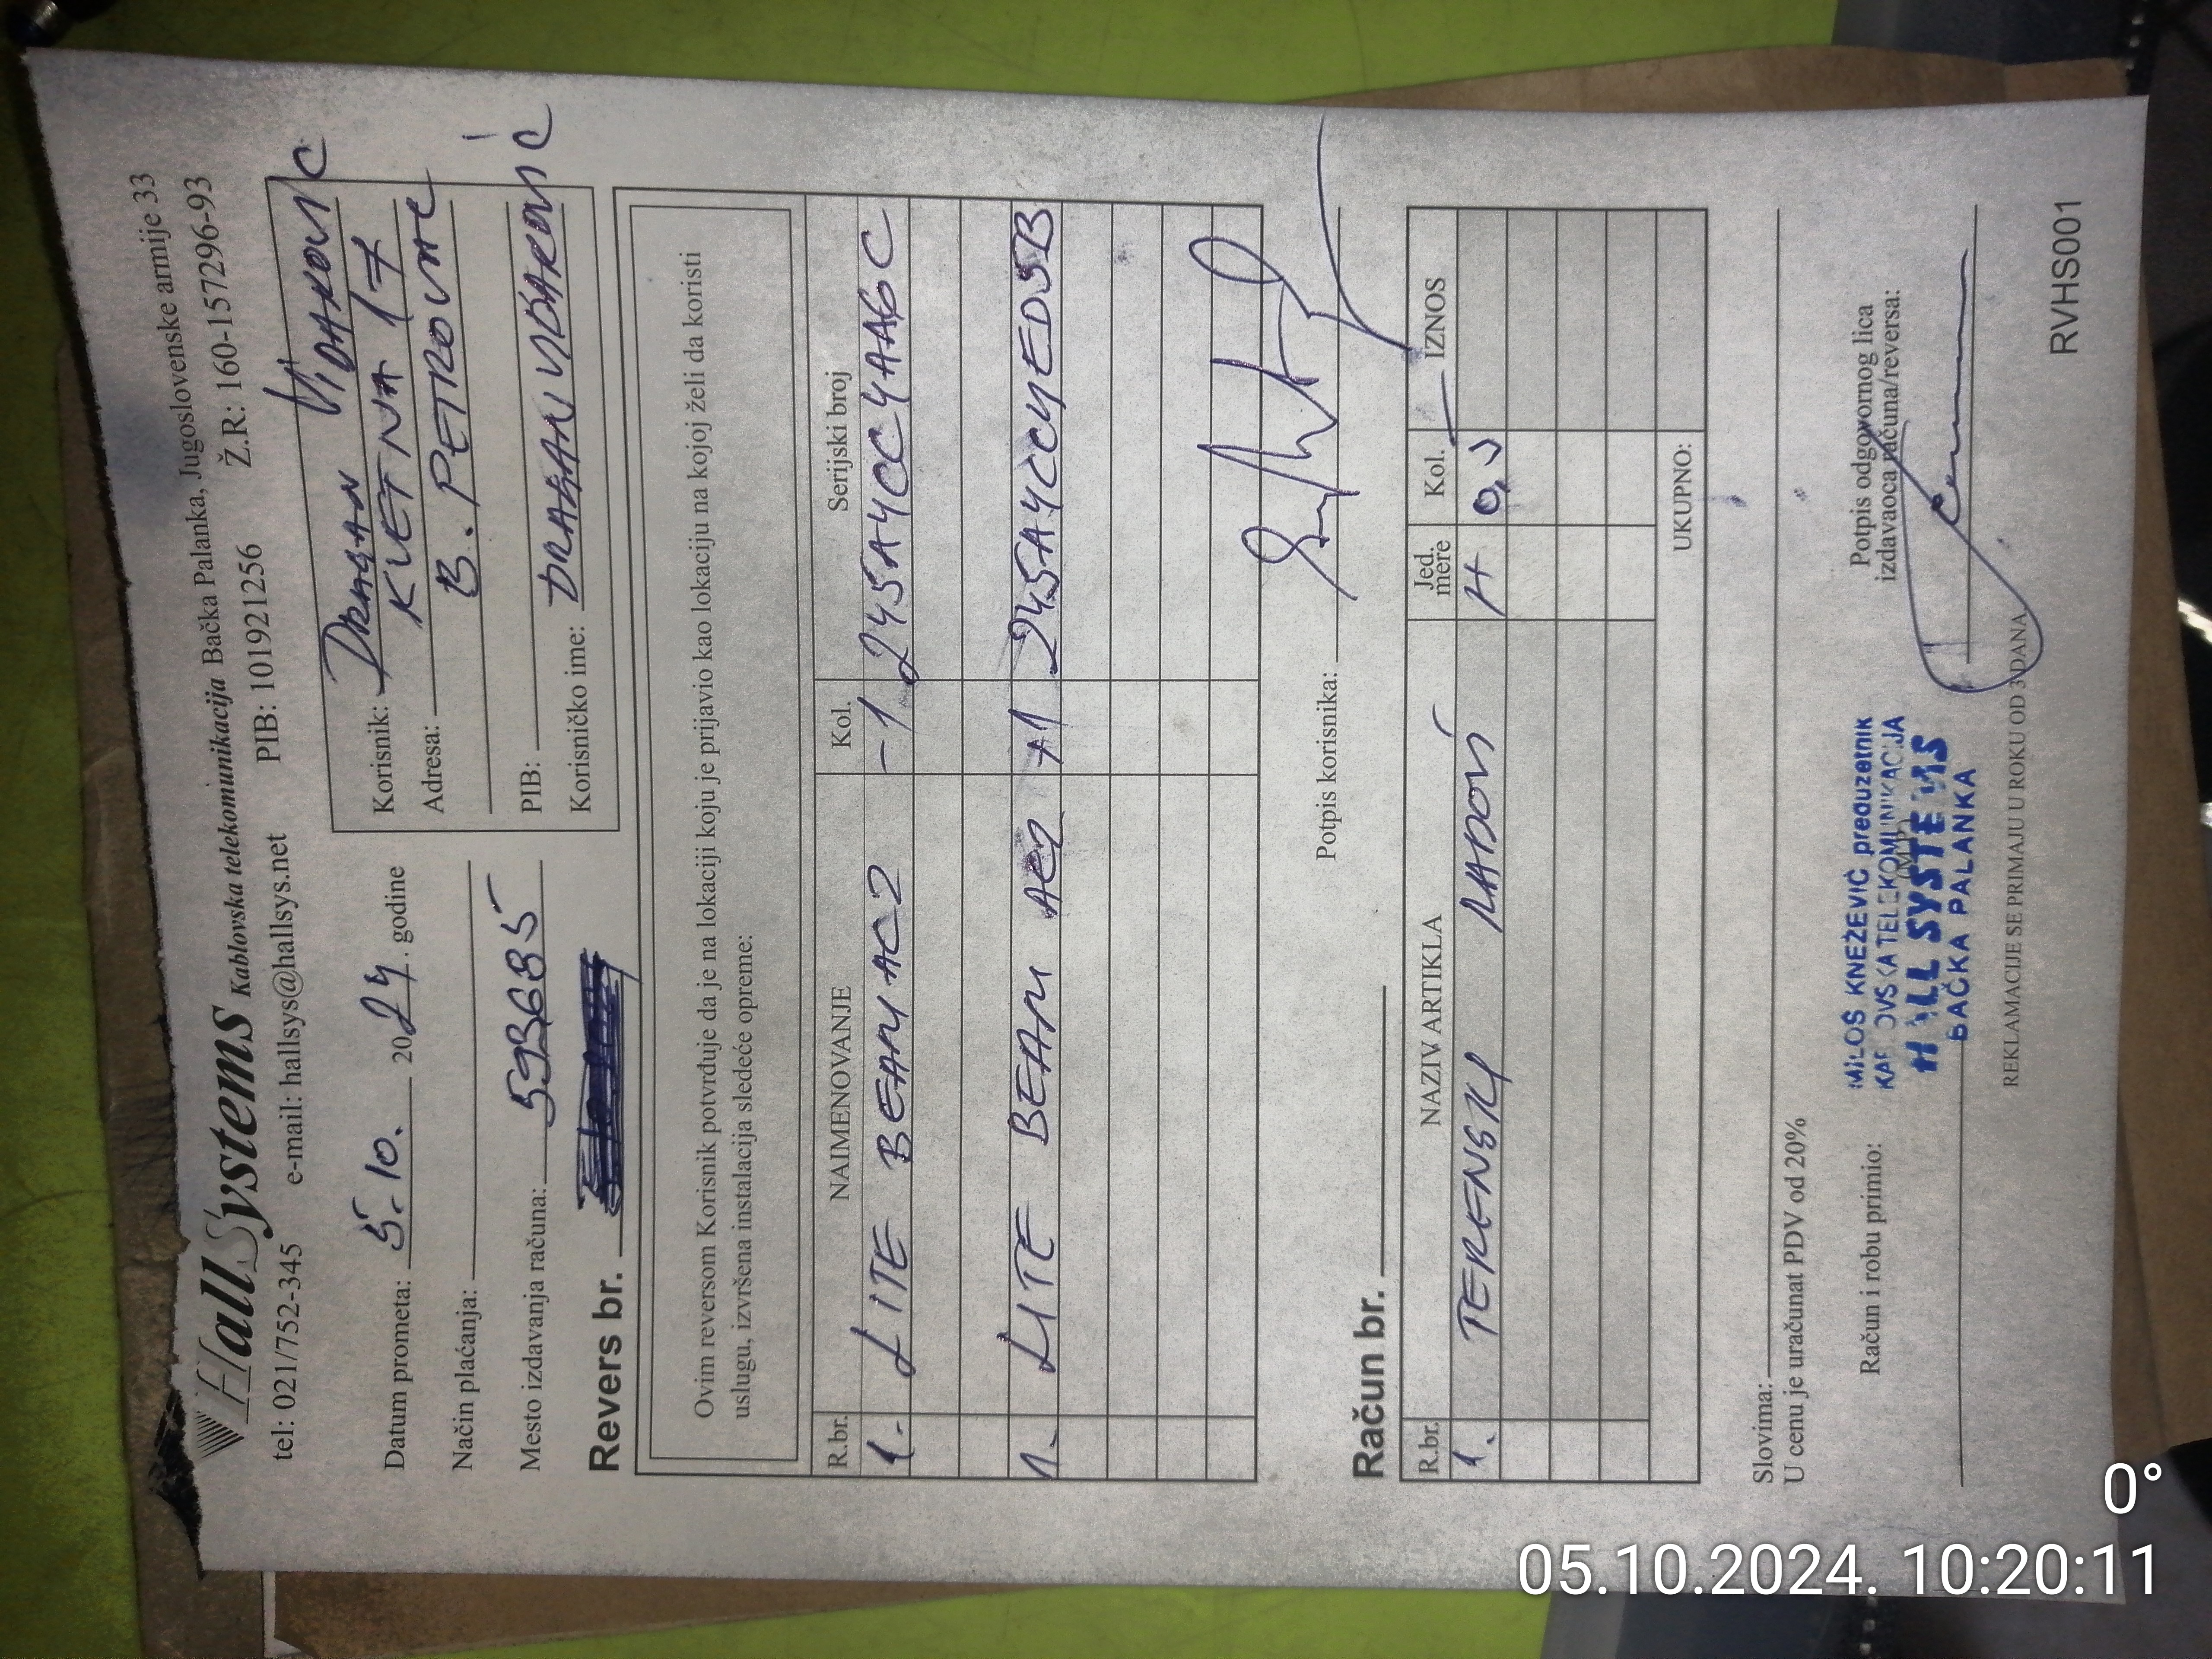 HallSystems Kablovska telekomunikacija Bačka Palanka, Jugoslovenske armije 33
tel: 021/752-345 e-mail: hallsys@hallsys.net PIB: 101921256 Ž.R: 160-157296-93
Datum prometa: 5.10. 2024. godine
Način plaćanja:
Mesto izdavanja računa: 593685
Korisnik: DRAGAN VIDAKOVIĆ
Adresa: KVETNA 17
B. PETROVAC
PIB:
Korisničko ime: DRAGANVIDAKOVIĆ
Revers br.
Ovim reversom Korisnik potvrđuje da je na lokaciji koju je prijavio kao lokaciju na kojoj želi da koristi
uslugu, izvršena instalacija sledeće opreme:
R.br. NAIMENOVANJE Kol. Serijski broj
1. LITE BEAM AC2 -1 245A4CC4AA6C
1. LITE BEAM AC2 +1 245A4CC4ED5B
Potpis korisnika:
Račun br.
R.br. NAZIV ARTIKLA Jed. mere Kol. IZNOS
1. TERENSKI RADOVI H 0,5
UKUPNO:
Slovima:
U cenu je uračunat PDV od 20%
Račun i robu primio:
Potpis odgovornog lica
izdavaoca računa/reversa:
MILOŠ KNEŽEVIĆ preduzetnik
KABLOVSKA TELEKOMUNIKACIJA
HALL SYSTEMS
BAČKA PALANKA
REKLAMACIJE SE PRIMAJU U ROKU OD 3 DANA
RVHS001
0°
05.10.2024. 10:20:11